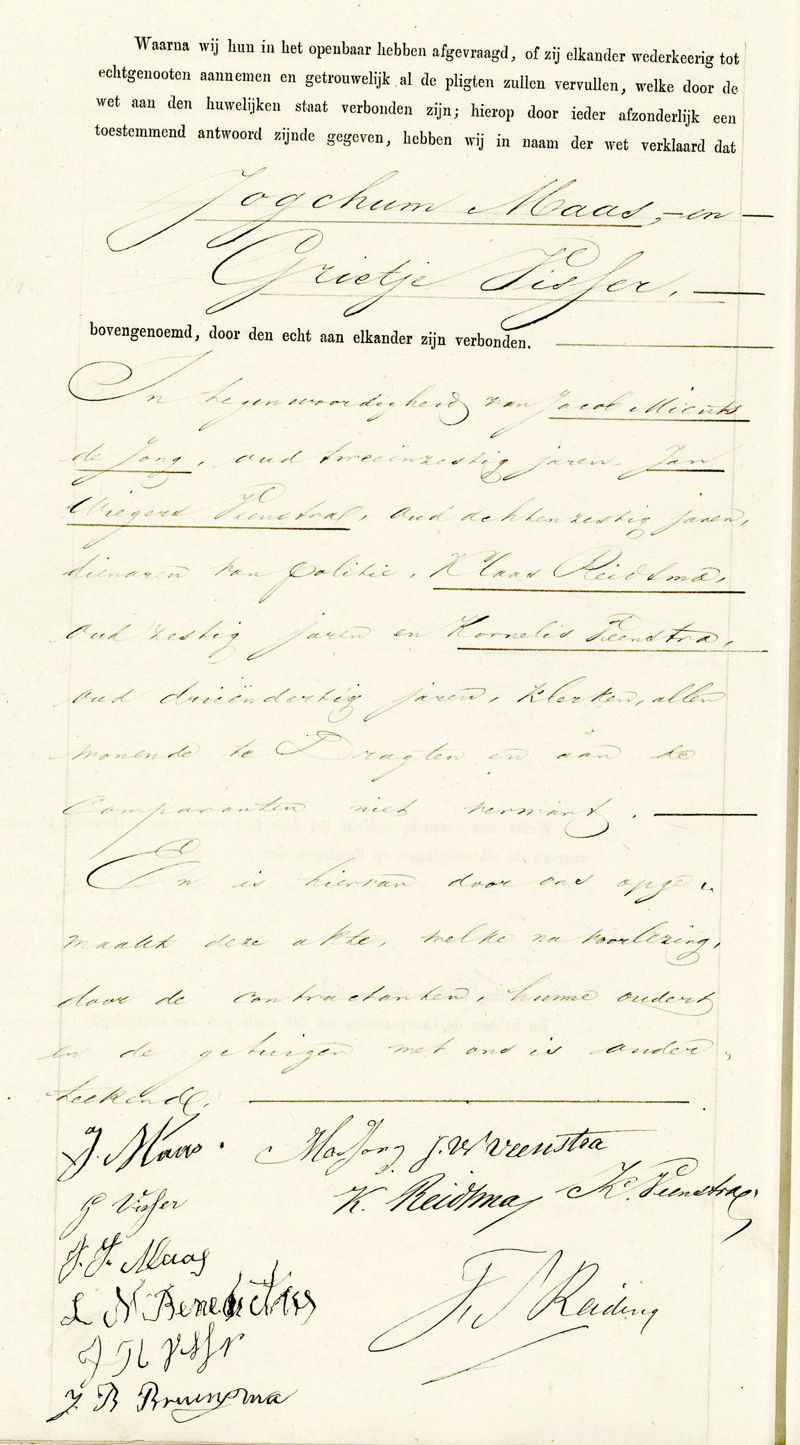 Waarna wij hun in het openbaar hebben afgevraagd, of zij elkander wederkeerig tot
echtgenooten aannemen en getrouwelijk al de pligten zullen vervullen, welke door de
wet aan den huwelijken staat verbonden zijn; hierop door ieder afzonderlijk een
toestemmend antwoord zijnde gegeven, hebben wij in naam der wet verklaard dat
Jogchum Maas, en
Grietje Visser.
bovengenoemd, door den echt aan elkander zijn verbonden.
In tegenwoordigheid van Jacob Mients
de Jong, oud tweeënzestig jaren, Jan
Wiegers Veenstra, oud achtenzestig jaren,
dienaren van politie, Klaas Reidsma,
oud zestig jaren en Kornelis Veenstra,
oud drieëndertig jaren, klerken, allen
wonende te Dragten en aan de
Comparanten niet vermant.
En is hiervan door ons opge-
maakt deze akte, welke na voorlezing,
door de contractanten, hunne ouders
en de getuigen met ons is onder-
teekend.
J. Maas. M de Jong J. W Veenstra
G Visser K. Reidsma K. Veenstra
J. J. Maas
L N Benedictus F S Reiding
J H Visser
J. B Bruinsma